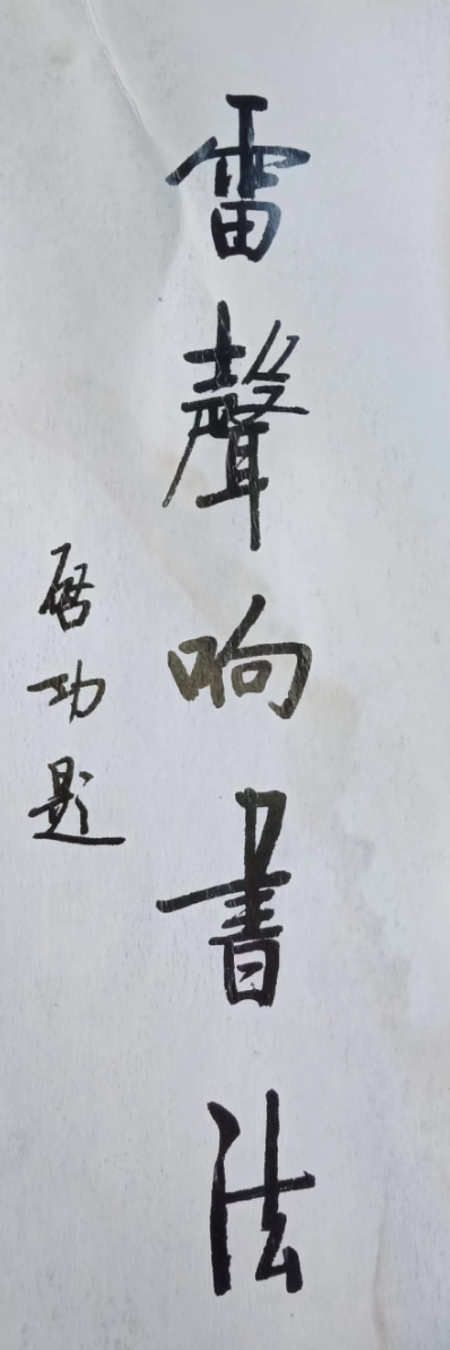 雷聲响書法
啓功題